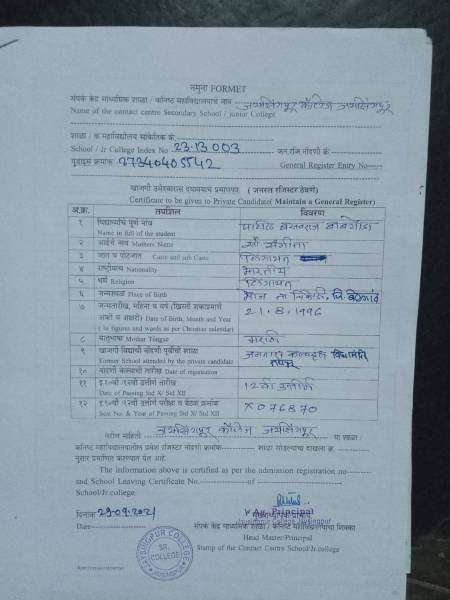 नमुना FORMET
संपर्क केंद्र माध्यमिक शाळा / कनिष्ठ महाविद्यालयाचे नाव जयसिंगपूर कॉलेज जयसिंगपूर
Name of the contact centre Secondary School / junior College
शाळा / क.महाविद्यालय सांकेतिक क्रं.
School / Jr College Index No 23.13.003 जन.रजि नोंदणी क्रं.
युडाइस क्रमांक 27340405542 General Register Entry No
खाजगी उमेदवारास द्यावयाचे प्रमाणपत्र ( जनरल रजिस्टर ठेवणे)
Certificate to be given to Private Candidate( Maintain a General Register)
अ.क्र. तपशिल विवरण
१ विद्यार्थ्याचे पूर्ण नांव
Name in full of the student
२ आईचे नाव Mothers Name सौ. संगीता
३ जात व पोटजात Caste and sub Caste लिंगायत
४ राष्ट्रीयत्व Nationality भारतीय
५ धर्म Religion लिंगायत
६ जन्मस्थळ Place of Birth
७ जन्मतारीख, महिना व वर्ष (खिस्ती शकाप्रमाणे
अंकी व अक्षरी) Date of Birth, Month and Year 21.8.1996
( In figures and words as per Christian calendar)
८ मातृभाषा Mother Tongue मराठी
९ खाजगी विद्यार्थी नोंदणी पूर्वीची शाळा
Former School attended by the private candidate
१० नोंदणी केल्याची तारीख Date of registration
११ इ१०वी /१२वी उत्तीर्ण तारीख 12वी उत्तीर्ण
Date of Passing Std X/ Std XII
१२ इ१०वी /१२वी उत्तीर्ण परीक्षा व बैठक क्रमांक X076870
Seat No. & Year of Passing Std X/ Std XII
वरील माहिती जयसिंगपूर कॉलेज जयसिंगपूर या शाळा /
कनिष्ठ महाविद्यालयातील प्रवेश रजिस्टर नोंदणी क्रमांक शाळा सोडल्याचा दाखला क्र.
नुसार प्रमाणित करण्यात येत आहे.
The information above is certified as per the admission registration no
and School Leaving Certificate No. of
School/Jr.college
दिनांक 29.09.2021
Date Principal
Jaysingpur College, Jaysingpur
संपर्क केंद्र माध्यमिक शाळा / कनिष्ठ महाविद्यालयाचा शिक्का
Head Master/Principal
Stamp of the Contact Centre School/Jr.college
JAYSINGPUR COLLEGE
SR. COLLEGE